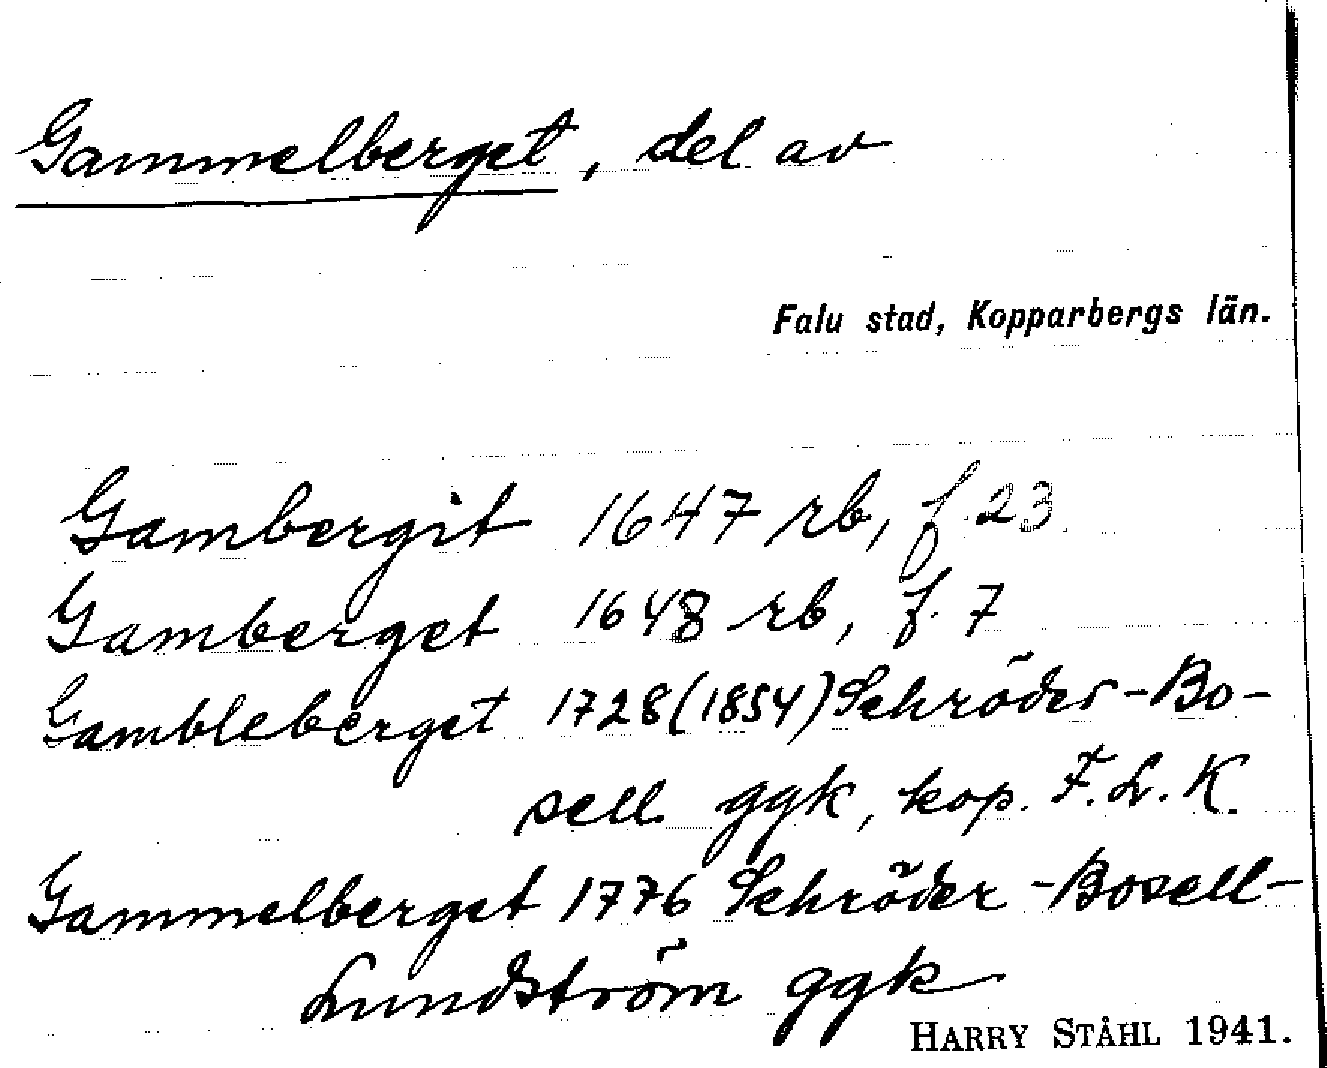 Gammelberget, del av
Falu stad, Kopparbergs län.
Gambergit 1647 rb, f. 23
Gamberget 1648 rb, f. 7
Gambleberget 1728 (1854) Schröder-Bo-
sell ggk, kop. F.L.K.
Gammelberget 1776 Schröder-Bosell-
Lundström ggk
HARRY STÅHL 1941.